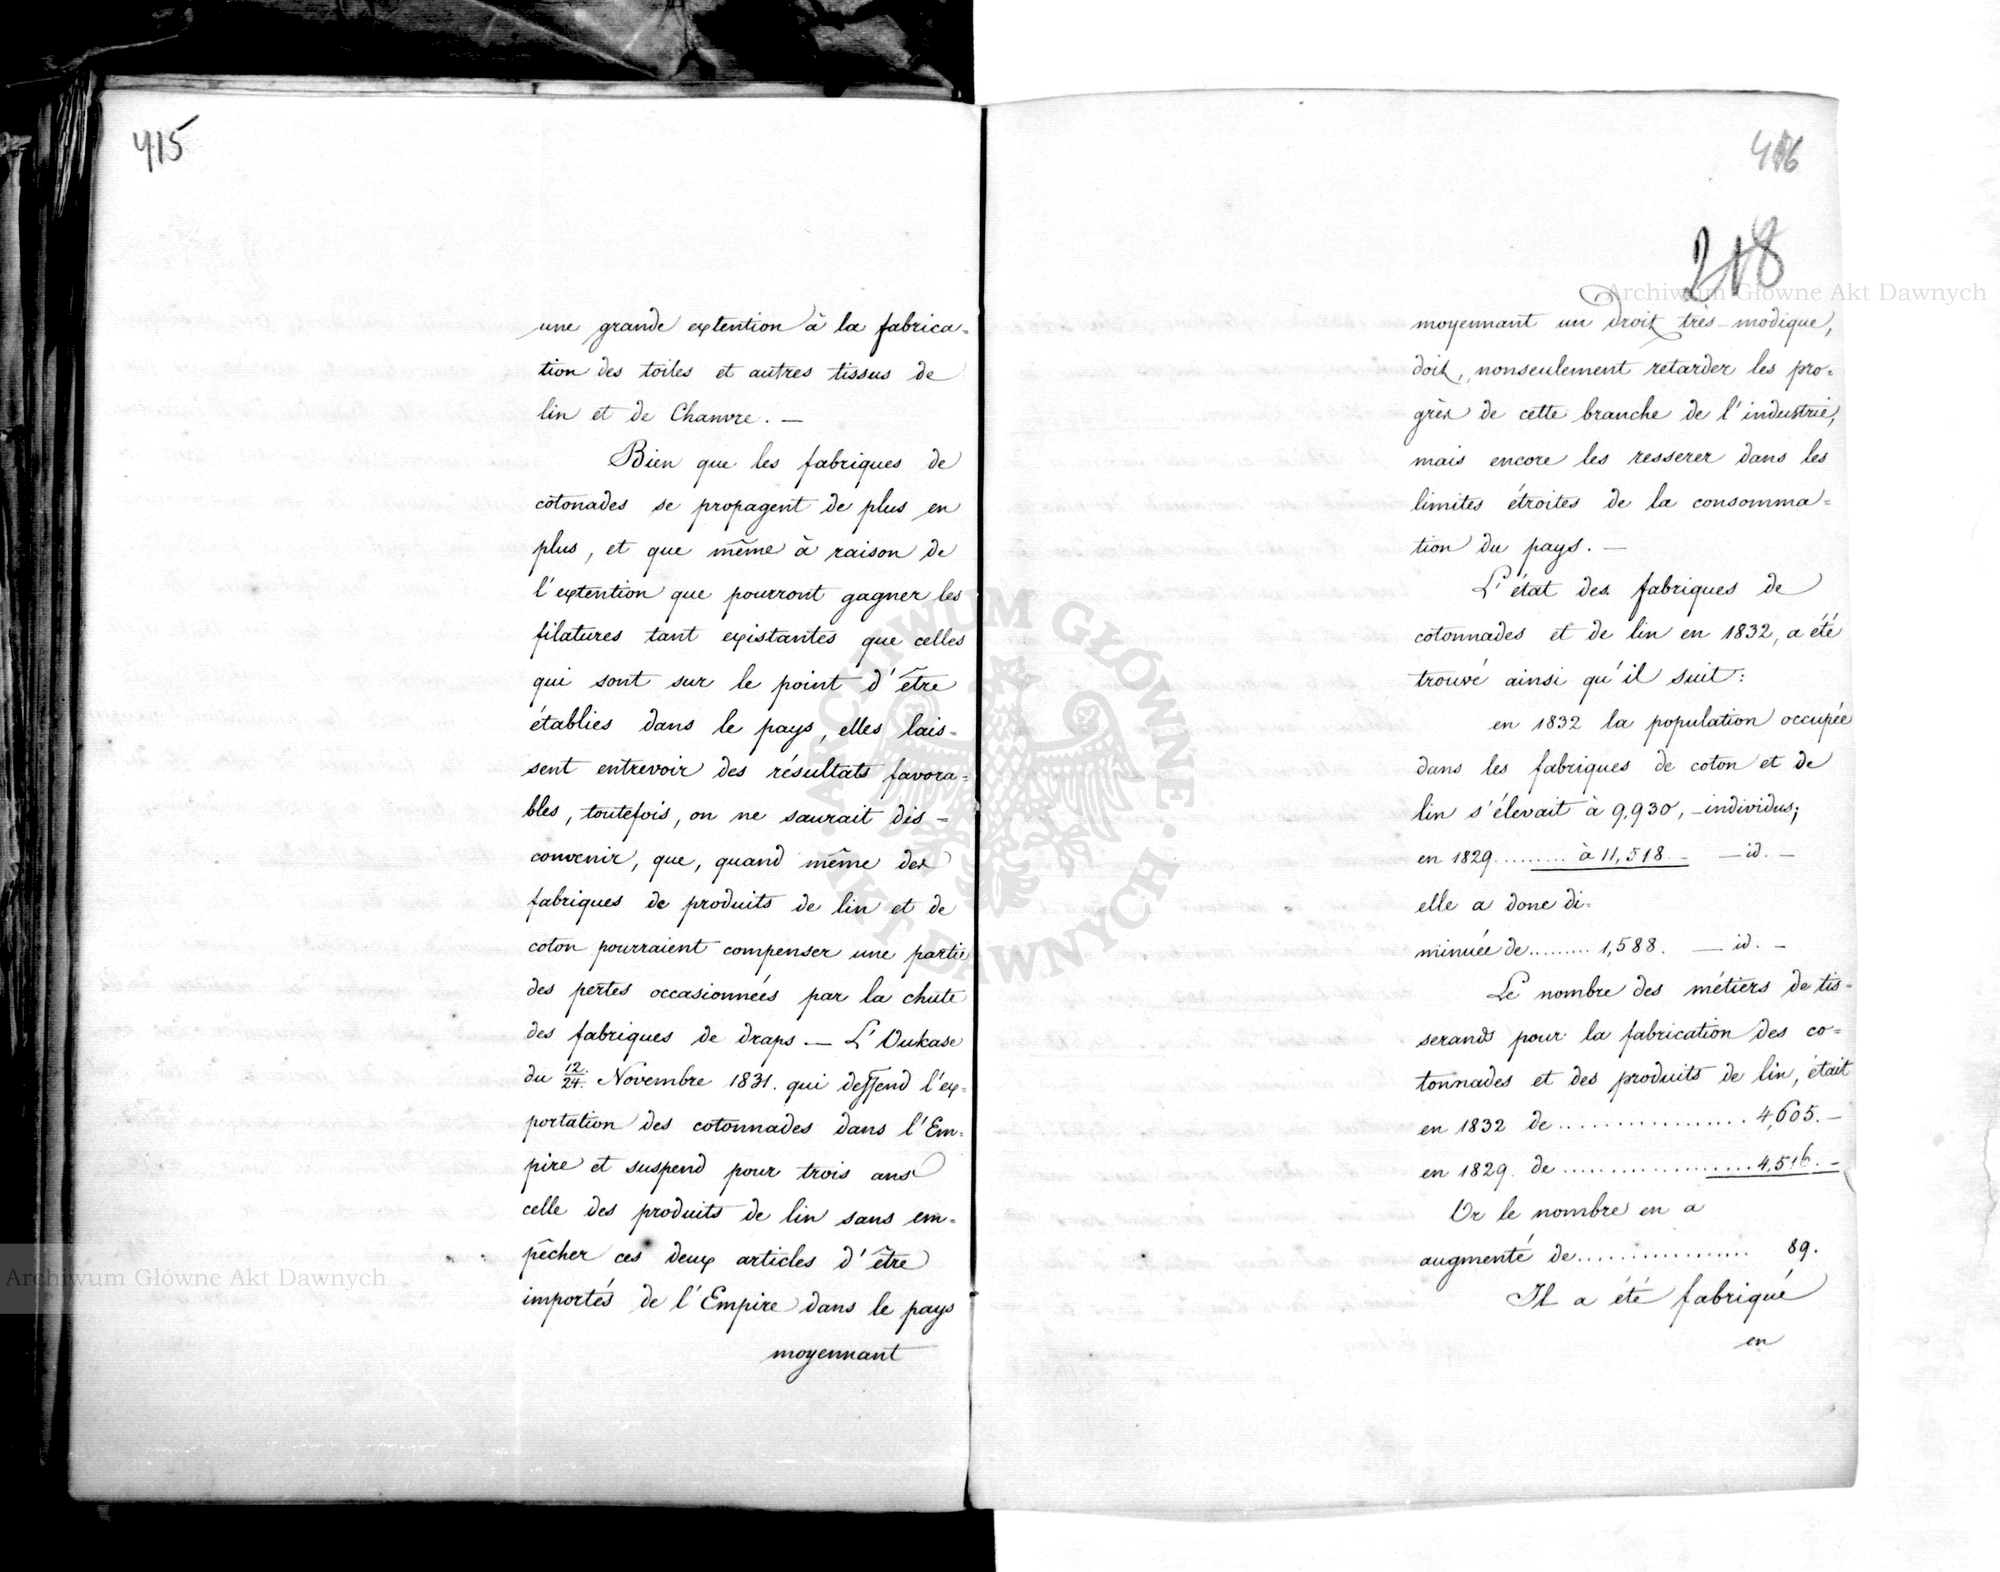 415
une grande extention à la fabrica=
tion des toiles et autres tissus de
lin et de Chanvre. —
Bien que les fabriques de
cotonades se propagent de plus en
plus, et que même à raison de
l'extention que pourront gagner les
filatures tant existantes que celles
qui sont sur le point d'être
établies dans le pays, elles lais=
sent entrevoir des résultats favora=
bles, toutefois, on ne saurait dis=
convenir, que, quand même des
fabriques de produits de lin et de
coton pourraient compenser une partie
des pertes occasionnées par la chute
des fabriques de draps — L'Oukase
du 12/24. Novembre 1831. qui deffend l'ex=
portation des cotonnades dans l'Em=
pire et suspend pour trois ans
celle des produits de lin sans em=
pêcher ces deux articles d'être
importés de l'Empire dans le pays
moyennant
416
218
moyennant un droit très-modique,
doit, nonseulement retarder les pro=
grès de cette branche de l'industrie,
mais encore les resserer dans les
limites étroites de la consomma=
tion du pays. —
L'état des fabriques de
cotonnades et de lin en 1832, a été
trouvé ainsi qu'il suit:
en 1832 la population occupée
dans les fabriques de coton et de
lin s'élevait à 9,930, — individus;
en 1829 ......... à 11,518 — — id. —
elle a donc di=
minuée de ......... 1,588. — id. —
Le nombre des métiers de tis=
serands pour la fabrication des co=
tonnades et des produits de lin, était
en 1832 de ................. 4,605. —
en 1829. de ................... 4,516. —
Or le nombre en a
augmenté de ................. 89.
Il a été fabriqué
en
Archiwum Główne Akt Dawnych
Archiwum Główne Akt Dawnych
ARCHIWUM GŁÓWNE AKT DAWNYCH